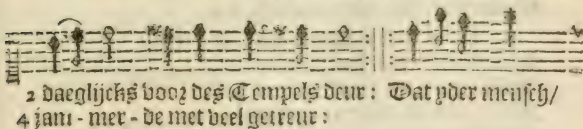 2 daeglijcks voor des Tempels deur : Dat yder mensch/
4 jam - mer - de met veel getreur :